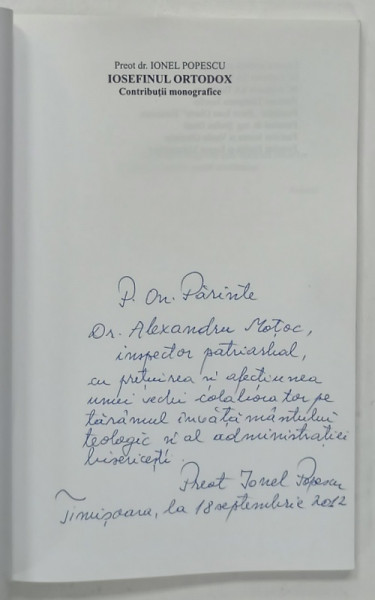 Preot dr. IONEL POPESCU
IOSEFINUL ORTODOX
Contribuții monografice
P. On. Părinte
Dr. Alexandru Moțoc,
inspector patriarhal,
cu prețuirea și afecțiunea
unui vechi colaborator pe
tărâmul învățământului
teologic și al administrației
bisericești.
Preot Ionel Popescu
Timișoara, la 18 septembrie 2012